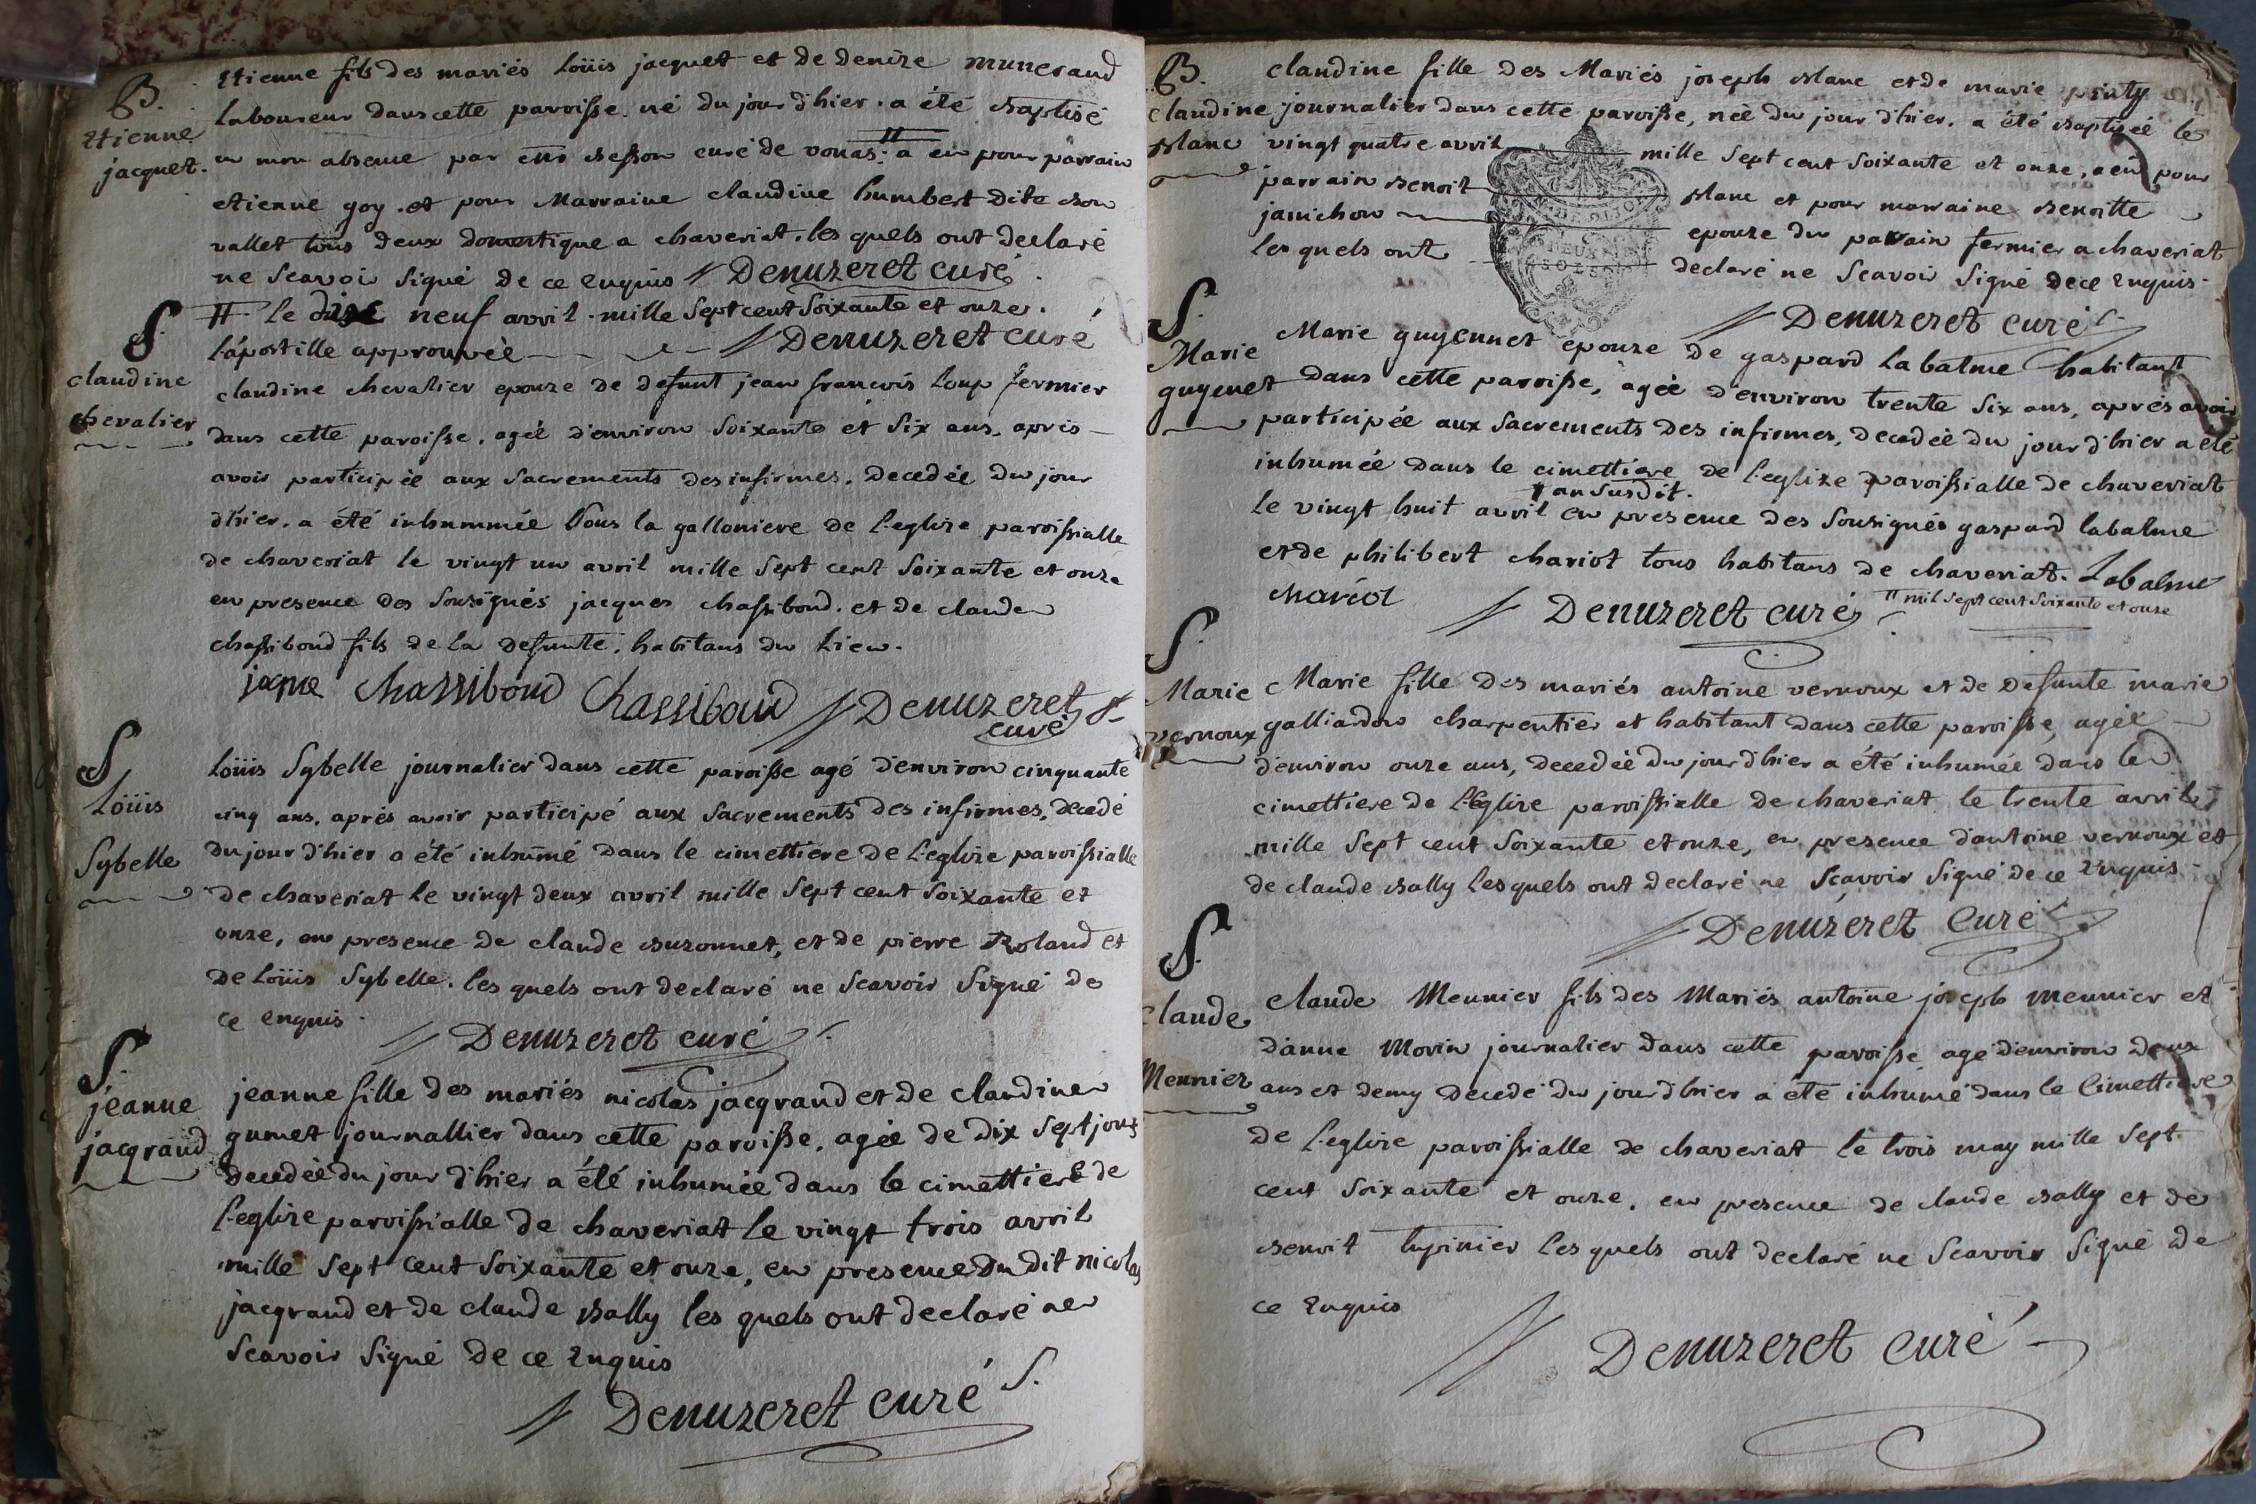 B.
Etienne
jacquet.
Etienne fils des mariés Loüis jacquet et de denize munerand
laboureur dans cette paroisse. né du jour d'hier. a été baptisé
en mon absence par besson curé de vonas. # a eu pour parrain
etienne goy. et pour Marraine claudine humbert dite bon
vallet tous deux domestique a chaveriat. les quels ont declaré
ne scavoir signé de ce enquis // Denuzeret curé
# le dixe neuf avril. mille sept cent soixante et onze.
l'apostille approuvée // Denuzeret curé
S.
claudine
chevalier
claudine chevalier epouze de defunt jean francois loup fermier
dans cette paroisse. agée d'environ soixante et six ans. apris
avoir participée aux sacrements des infirmes. decedée du jour
d'hier. a été inhummée sous la galloniere de l'eglize paroissialle
de chaveriat le vingt un avril mille sept cent soixante et onze
en presence des sousignés jacques chassiboud. et de claude
chassiboud fils de la defunte. habitans du lieu.
jaque chassiboud Chassiboud // Denuzeret
curé
S
Loüis
Sybelle
Loüis Sybelle journalier dans cette paroisse agé d'environ cinquante
cinq ans. aprés avoir participé aux sacrements des infirmes. decedé
du jour d'hier a été inhumé dans le cimettiere de l'eglize paroissialle
de chaveriat le vingt deux avril mille sept cent soixante et
onze, en presence de claude buzonnet, et de pierre Roland et
de Loüis Sybelle. les quels ont declaré ne scavoir signé de
ce enquis.
// Denuzeret curé
S.
jeanne
jacgrand
jeanne fille des mariés nicolas jacgrand et de claudine
gumet journallier dans cette paroisse. agée de dix sept jours
decedée du jour d'hier a été inhumée dans le cimettiere de
l'eglize paroissialle de chaveriat le vingt trois avril
mille sept cent soixante et onze, en presence du dit nicolas
jacgrand et de claude bally les quels ont declaré ne
scavoir signé de ce enquis
// Denuzeret curé
B.
claudine
blanc
claudine fille des Mariés joseph blanc et de marie pinty
journalier dans cette paroisse, née du jour d'hier. a été baptizée le
vingt quatre avril mille sept cent soixante et onze, a eu pour
parrain benoit blanc et pour marraine benoitte
janichon epouze du parrain fermier a chaveriat
les quels ont declaré ne scavoir signé de ce enquis.
// Denuzeret curé
S.
Marie
guyenet
Marie guyennet epouze de gaspard labalme habitant
dans cette paroisse, agée d'environ trente six ans, aprés avoir
participée aux sacrements des infirmes, decedée du jour d'hier a été
inhumée dans le cimettiere de l'eglize paroissialle de chaveriat
an susdit.
le vingt huit avril en presence des sousignés gaspard labalme
et de philibert chariot tous habitans de chaveriat. Labalme
chariot // Denuzeret curé
# mil sept cent soixante et onze
S.
Marie
vernoux
Marie fille des mariés antoine vernoux et de defunte marie
galliardon charpentier et habitant dans cette paroisse, agée
d'environ onze ans, decedée du jour d'hier a été inhumée dans le
cimettiere de l'Eglize paroissialle de chaveriat le trente avril
mille sept cent soixante et onze, en presence d'antoine vernoux et
de claude bally lesquels ont declaré ne scavoir signé de ce enquis
// Denuzeret curé
S.
claude
Meunier
claude Meunier fils des Mariés antoine joseph meunier et
d'anne Morin journalier dans cette paroisse agé d'environ deux
ans et demy decedé du jour d'hier a été inhumé dans le Cimettiere
de l'eglize paroissialle de chaveriat le trois may mille sept
cent soixante et onze. en presence de claude bally et de
benoit tupinier lesquels ont declaré ne scavoir signé de
ce enquis
// Denuzeret curé